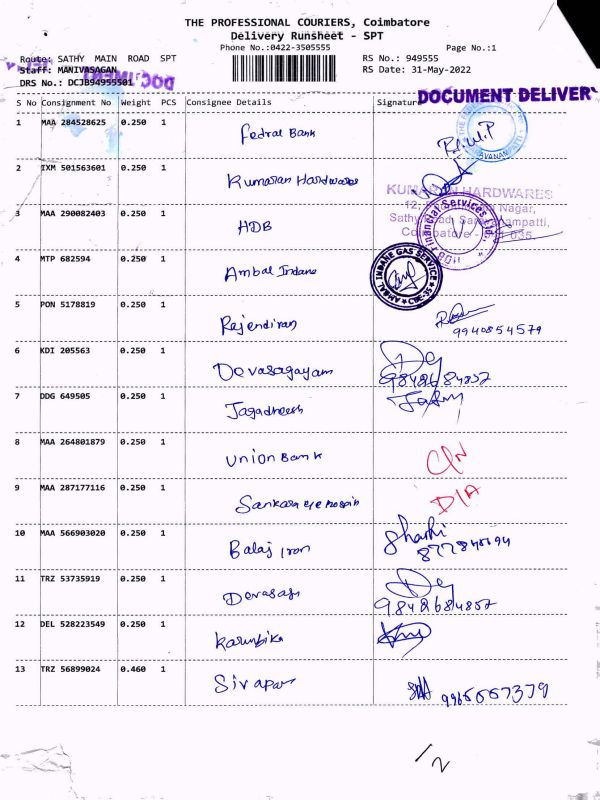 THE PROFESSIONAL COURIERS, Coimbatore
Delivery Runsheet - SPT
Phone No.:0422-3505555
Page No.:1
Route: SATHY MAIN ROAD SPT
RS No.: 949555
Staff: MANIVASAGAN
RS Date: 31-May-2022
DRS No.: DCJB94955501
DOCUMENT
DOCUMENT DELIVER
S No Consignment No Weight PCS Consignee Details Signature
1 MAA 284528625 0.250 1 Fedral Bank
2 IXM 501563601 0.250 1 Kumaran Hardwares
HARDWARES
Nagar,
3 MAA 290082403 0.250 1 HDB
Financial Services Ltd.
4 MTP 682594 0.250 1 Ambal Indane
AMBAL INDANE GAS SERVICE CBE-35
5 PON 5178819 0.250 1 Rajendiran
9940854579
6 KDI 205563 0.250 1 Devasagayam
9842684852
7 DDG 649505 0.250 1 Jagadheesh
8 MAA 264801879 0.250 1 Union Bank
9 MAA 287177116 0.250 1 Sankara eye hospin
D/A
10 MAA 566903020 0.250 1 Balaj Iron Sharki
11 TRZ 53735919 0.250 1 Devasag
9842684852
12 DEL 528223549 0.250 1 Karunbika
13 TRZ 56899024 0.460 1 Sivapar
1/2